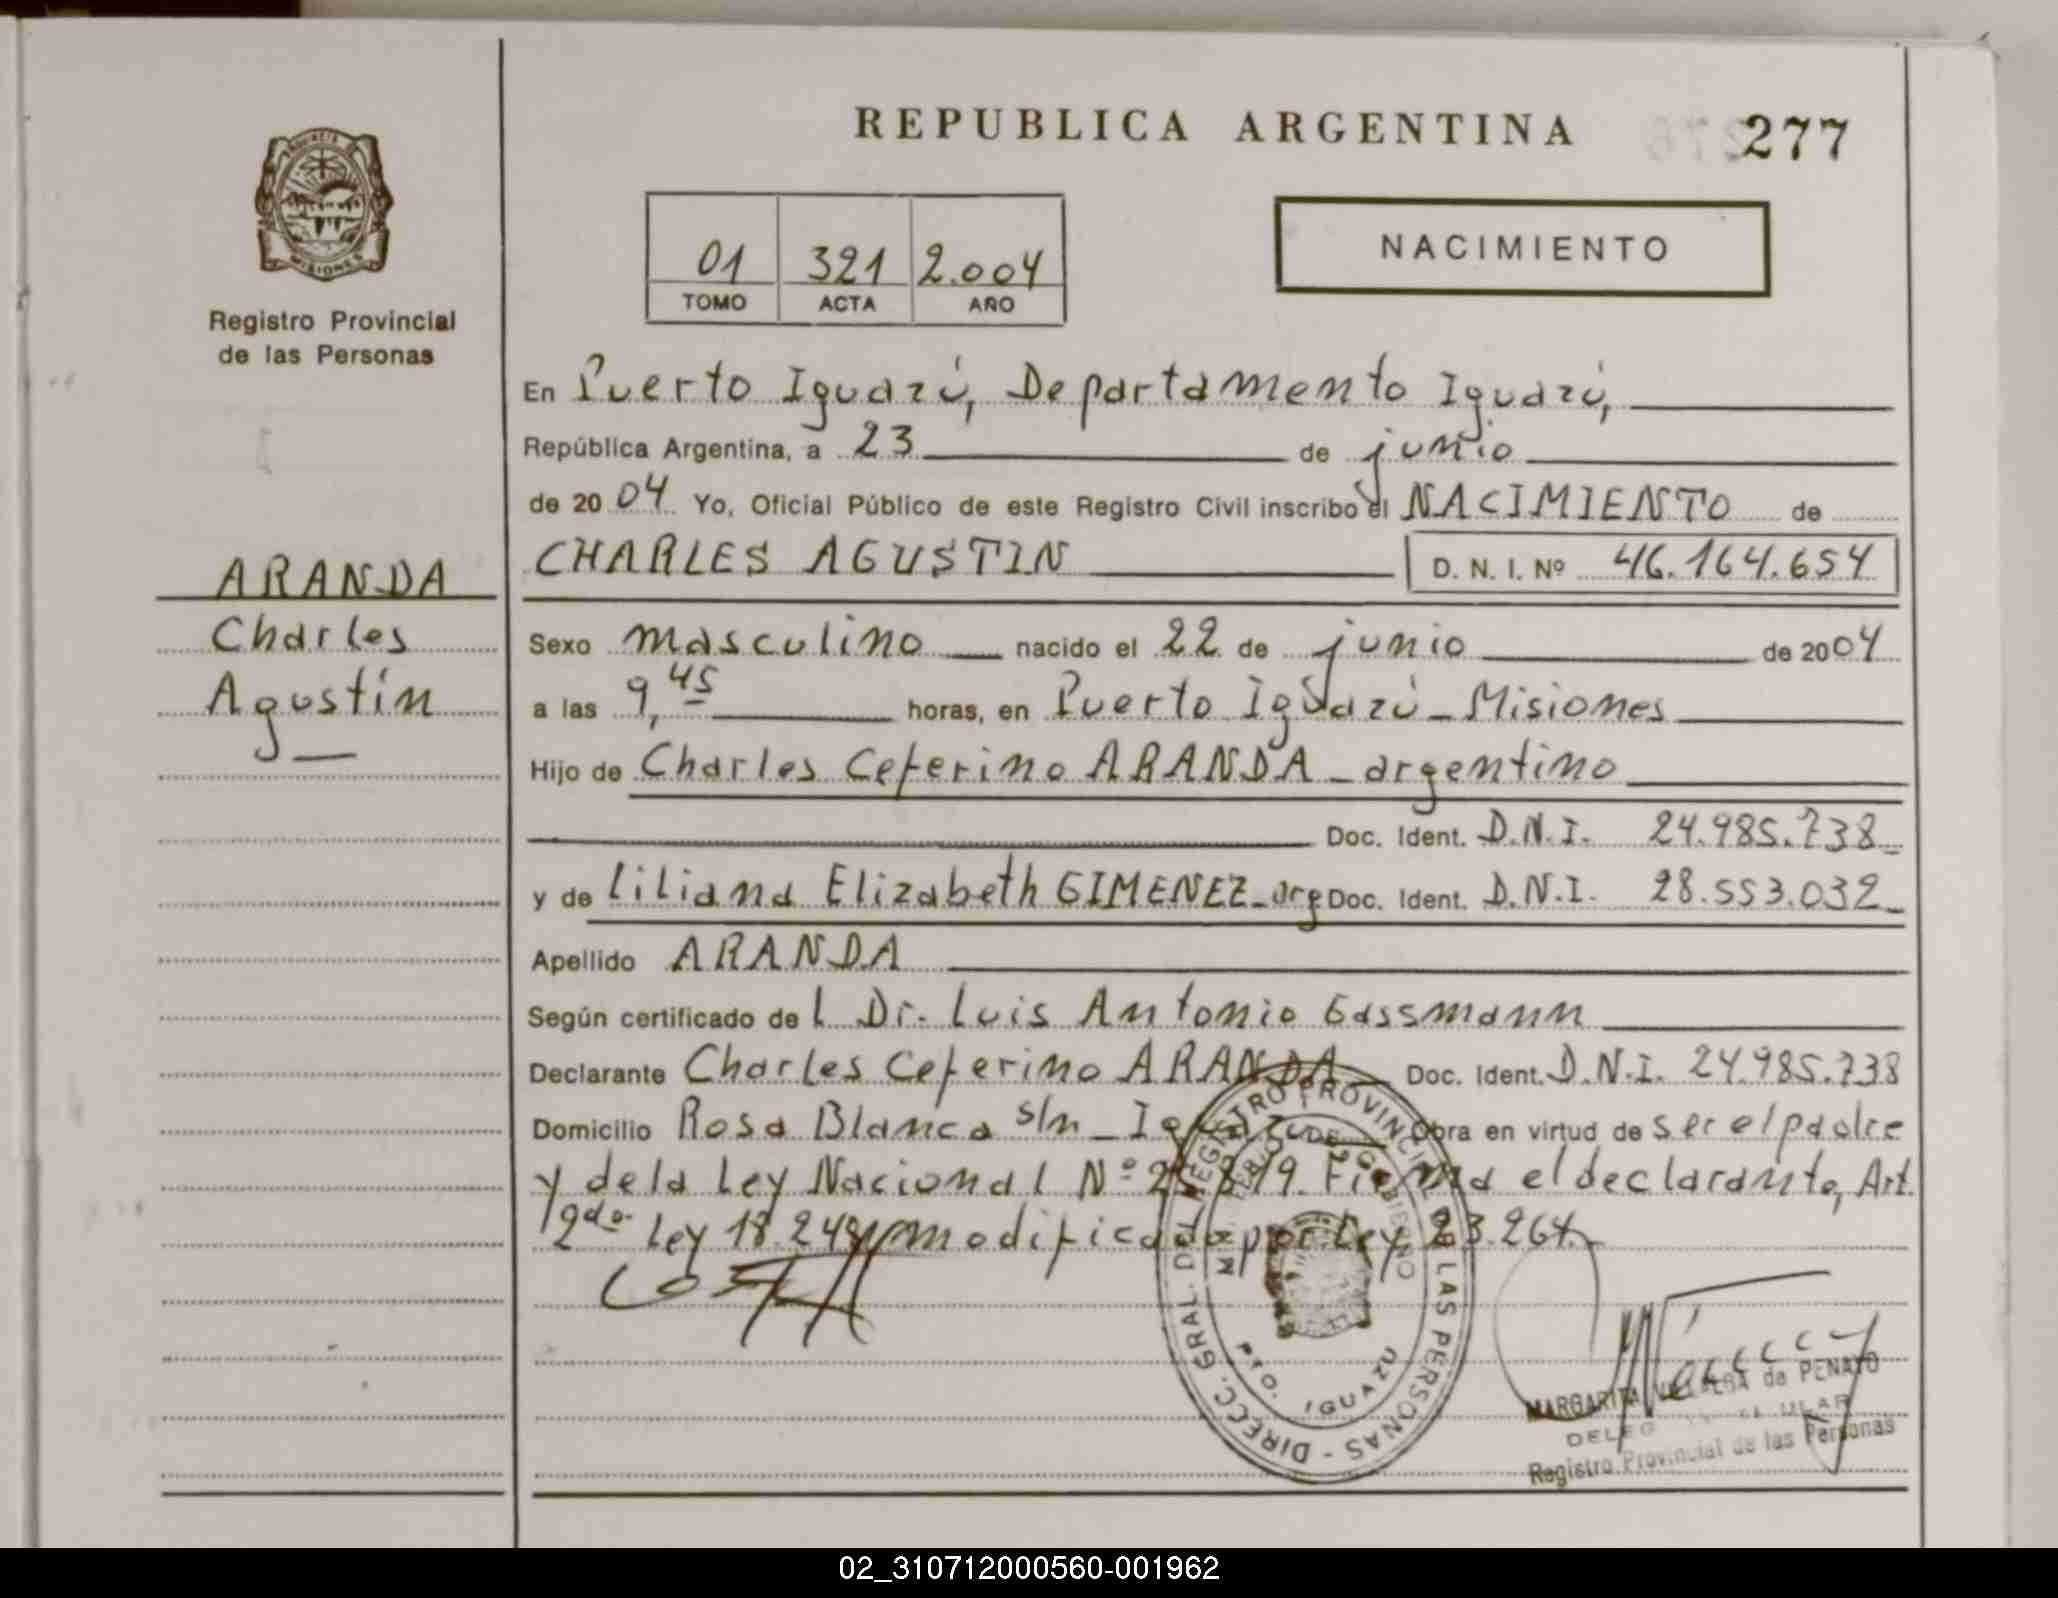 REPUBLICA ARGENTINA 277
PROVINCIA DE
MISIONES
Registro Provincial
de las Personas
01 321 2.004
TOMO ACTA AÑO
NACIMIENTO
En Puerto Iguazú, Departamento Iguazú,
República Argentina, a 23 de junio
de 20 04 Yo, Oficial Público de este Registro Civil inscribo el NACIMIENTO de
CHARLES AGUSTIN D. N. I. Nº 46.164.654
ARANDA
Charles
Agustín
Sexo masculino nacido el 22 de junio de 2004
a las 9,45 horas, en Puerto Iguazú - Misiones
Hijo de Charles Ceferino ARANDA - argentino
Doc. Ident. D.N.I. 24.985.738
y de Liliana Elizabeth GIMENEZ - arg Doc. Ident. D.N.I. 28.553.032
Apellido ARANDA
Según certificado del Dr. Luis Antonio Gassmann
Declarante Charles Ceferino ARANDA Doc. Ident. D.N.I. 24.985.738
Domicilio Rosa Blanca s/n - Iguazú Obra en virtud de ser el padre
y de la Ley Nacional Nº 25.819. Firma el declarante, Art.
2do. Ley 18.248 modificada por Ley 23.264.
DIRECC. GRAL. DEL REGISTRO PROVINCIAL DE LAS PERSONAS
DE GOBIERNO
PTO. IGUAZU
MARGARITA VILLALBA de PENAYO
Registro Provincial de las Personas
02_310712000560-001962